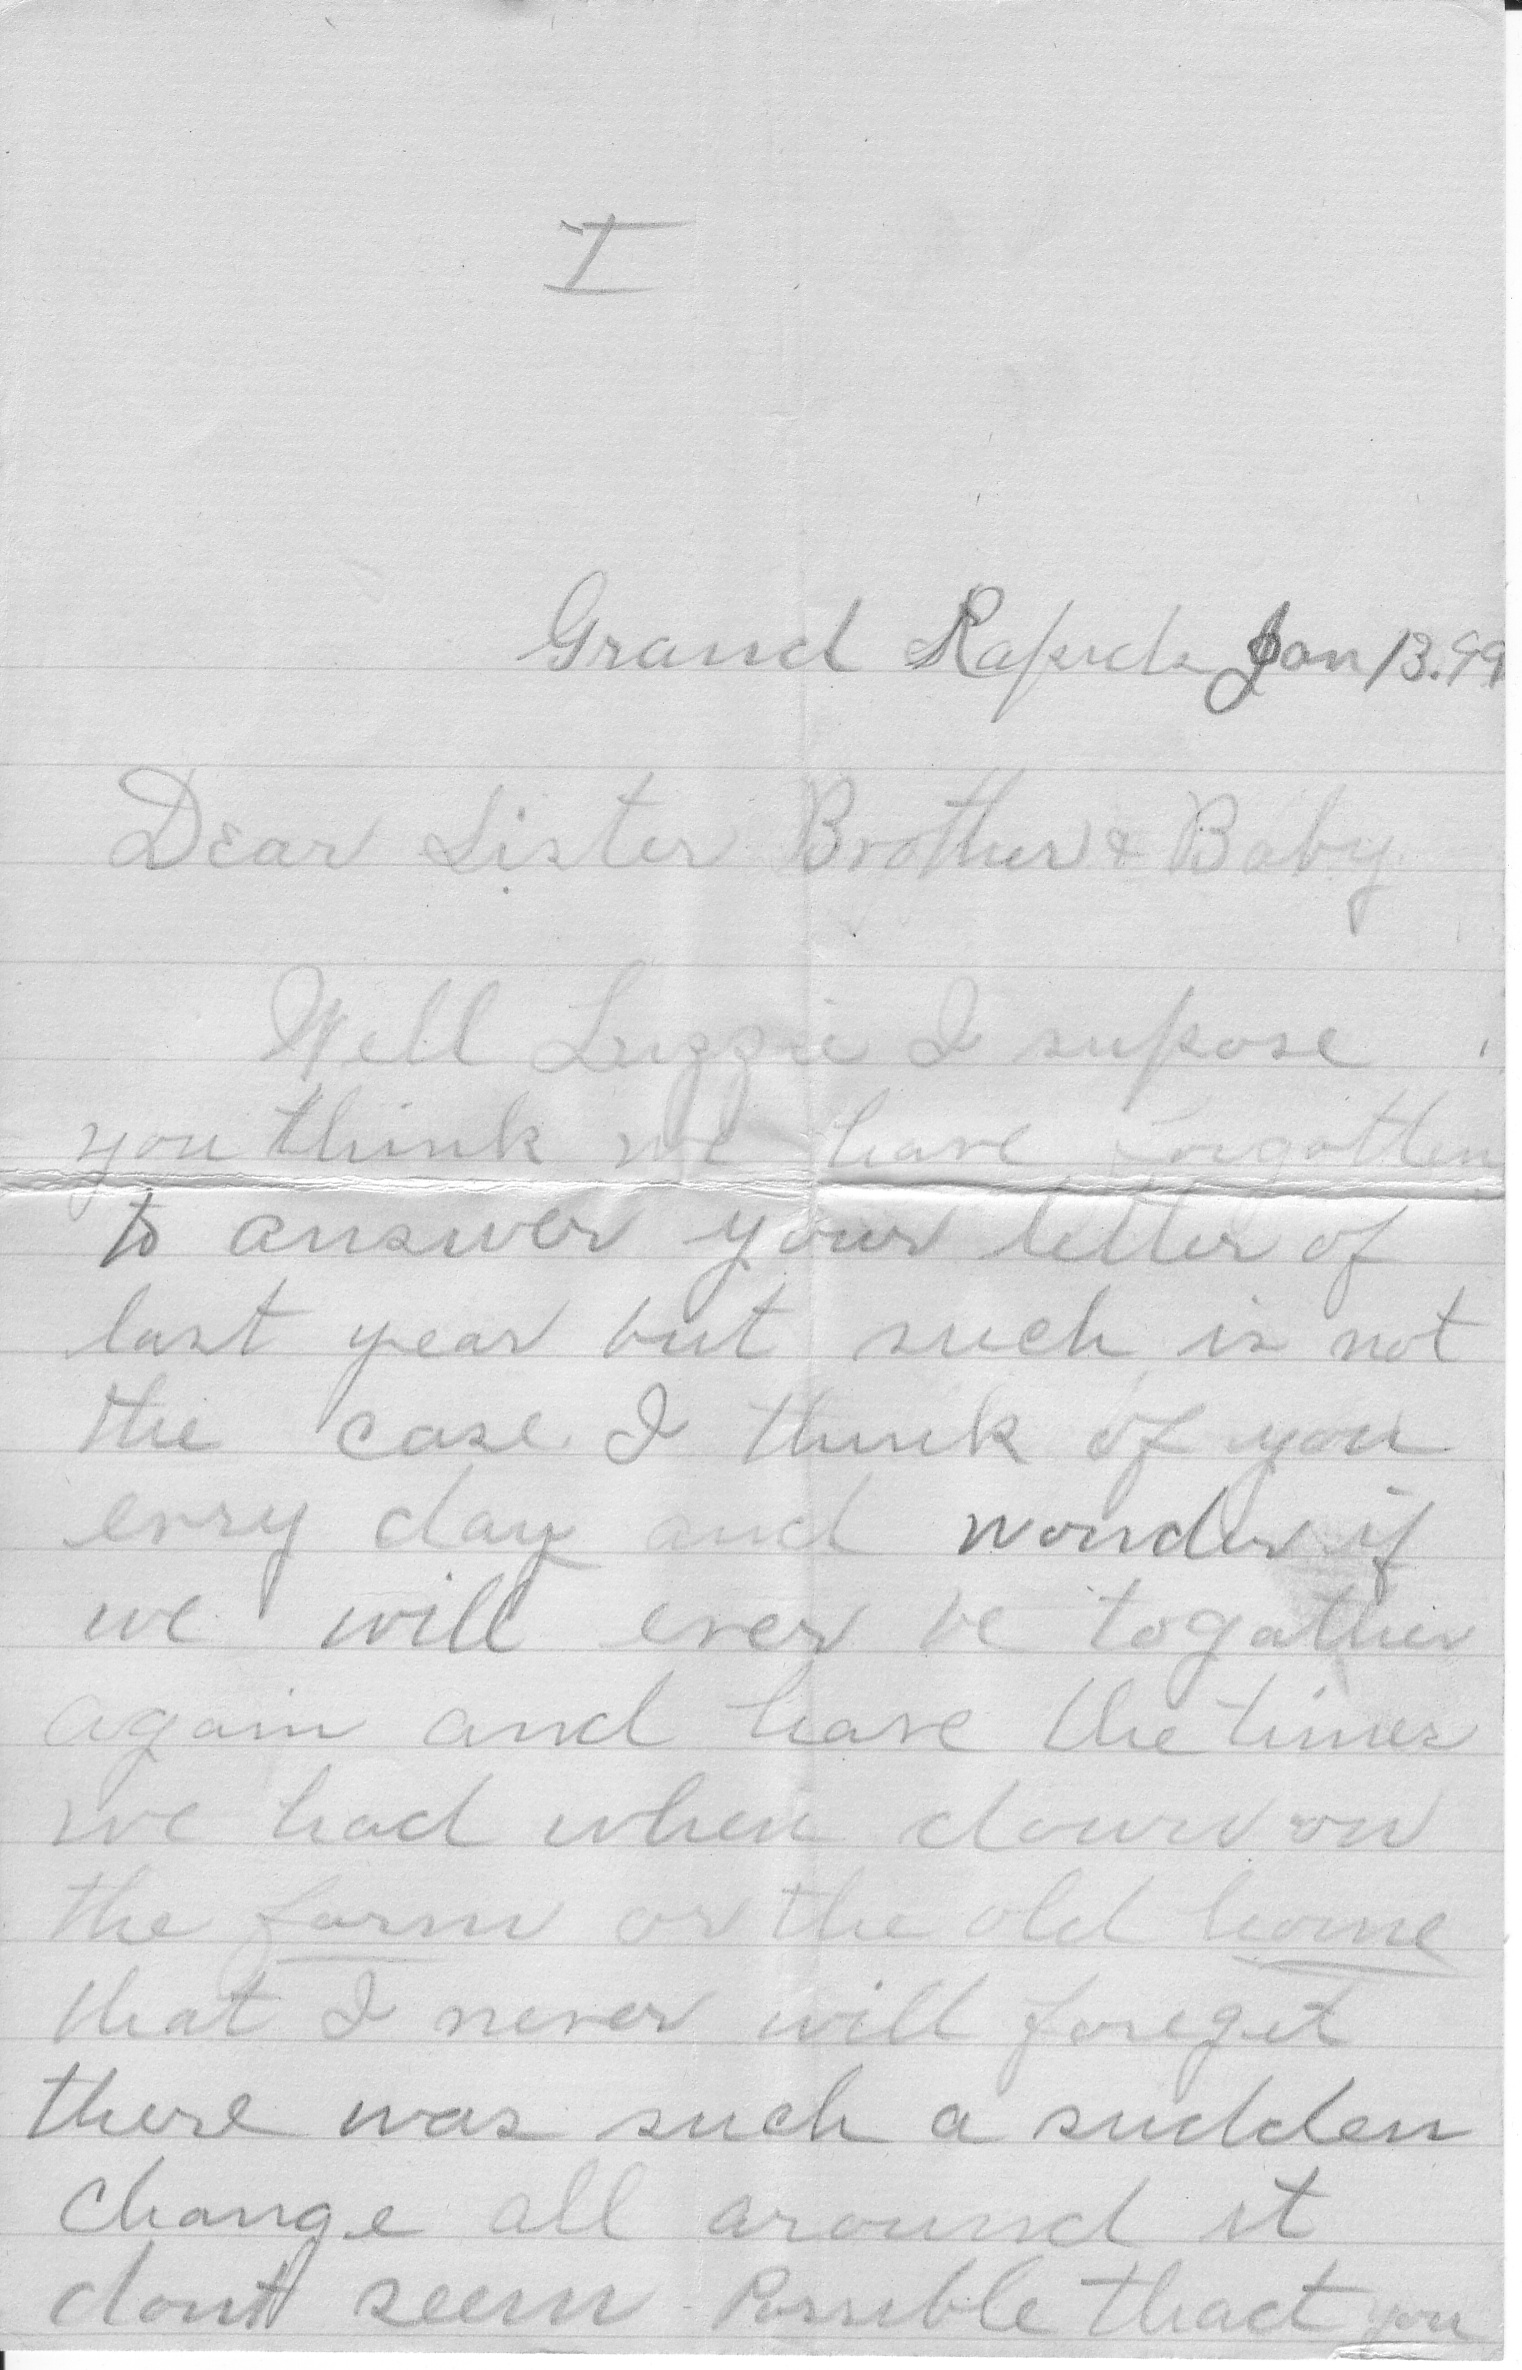 I
Grand Rapids Jan 13.99
Dear Sister Brother & Baby
Well Lizzie I supose
you think we have forgotten
to answer your letter of
last year but such is not
the case I think of you
evry day and wonder if
we will ever be togather
again and have the times
we had when down on
the farm or the old home
that I never will foreget
there was such a sudden
change all around it
dont seem Possible thact you